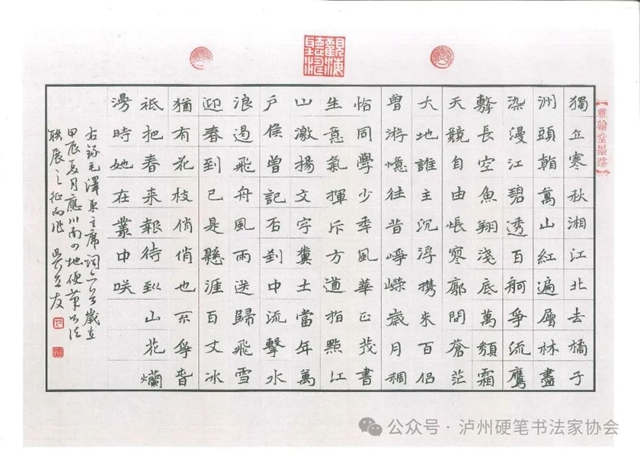 獨立寒秋湘江北去橘子
洲頭看萬山紅遍層林盡
染漫江碧透百舸爭流鷹
擊長空魚翔淺底萬類霜
天競自由悵寥廓問蒼茫
大地誰主沉浮攜來百侶
曾游憶往昔崢嶸歲月稠
恰同學少年風華正茂書
生意氣揮斥方遒指點江
山激揚文字糞土當年萬
戶侯曾記否到中流擊水
浪遏飛舟風雨送歸飛雪
迎春到已是懸涯百丈冰
猶有花枝俏俏也不爭春
祇把春來報待到山花爛
漫時她在叢中咲
右錄毛澤東主席詞二首歲在
甲辰夏月應川南四地硬筆書法
聯展之征而作 友
公众号·泸州硬笔书法家协会